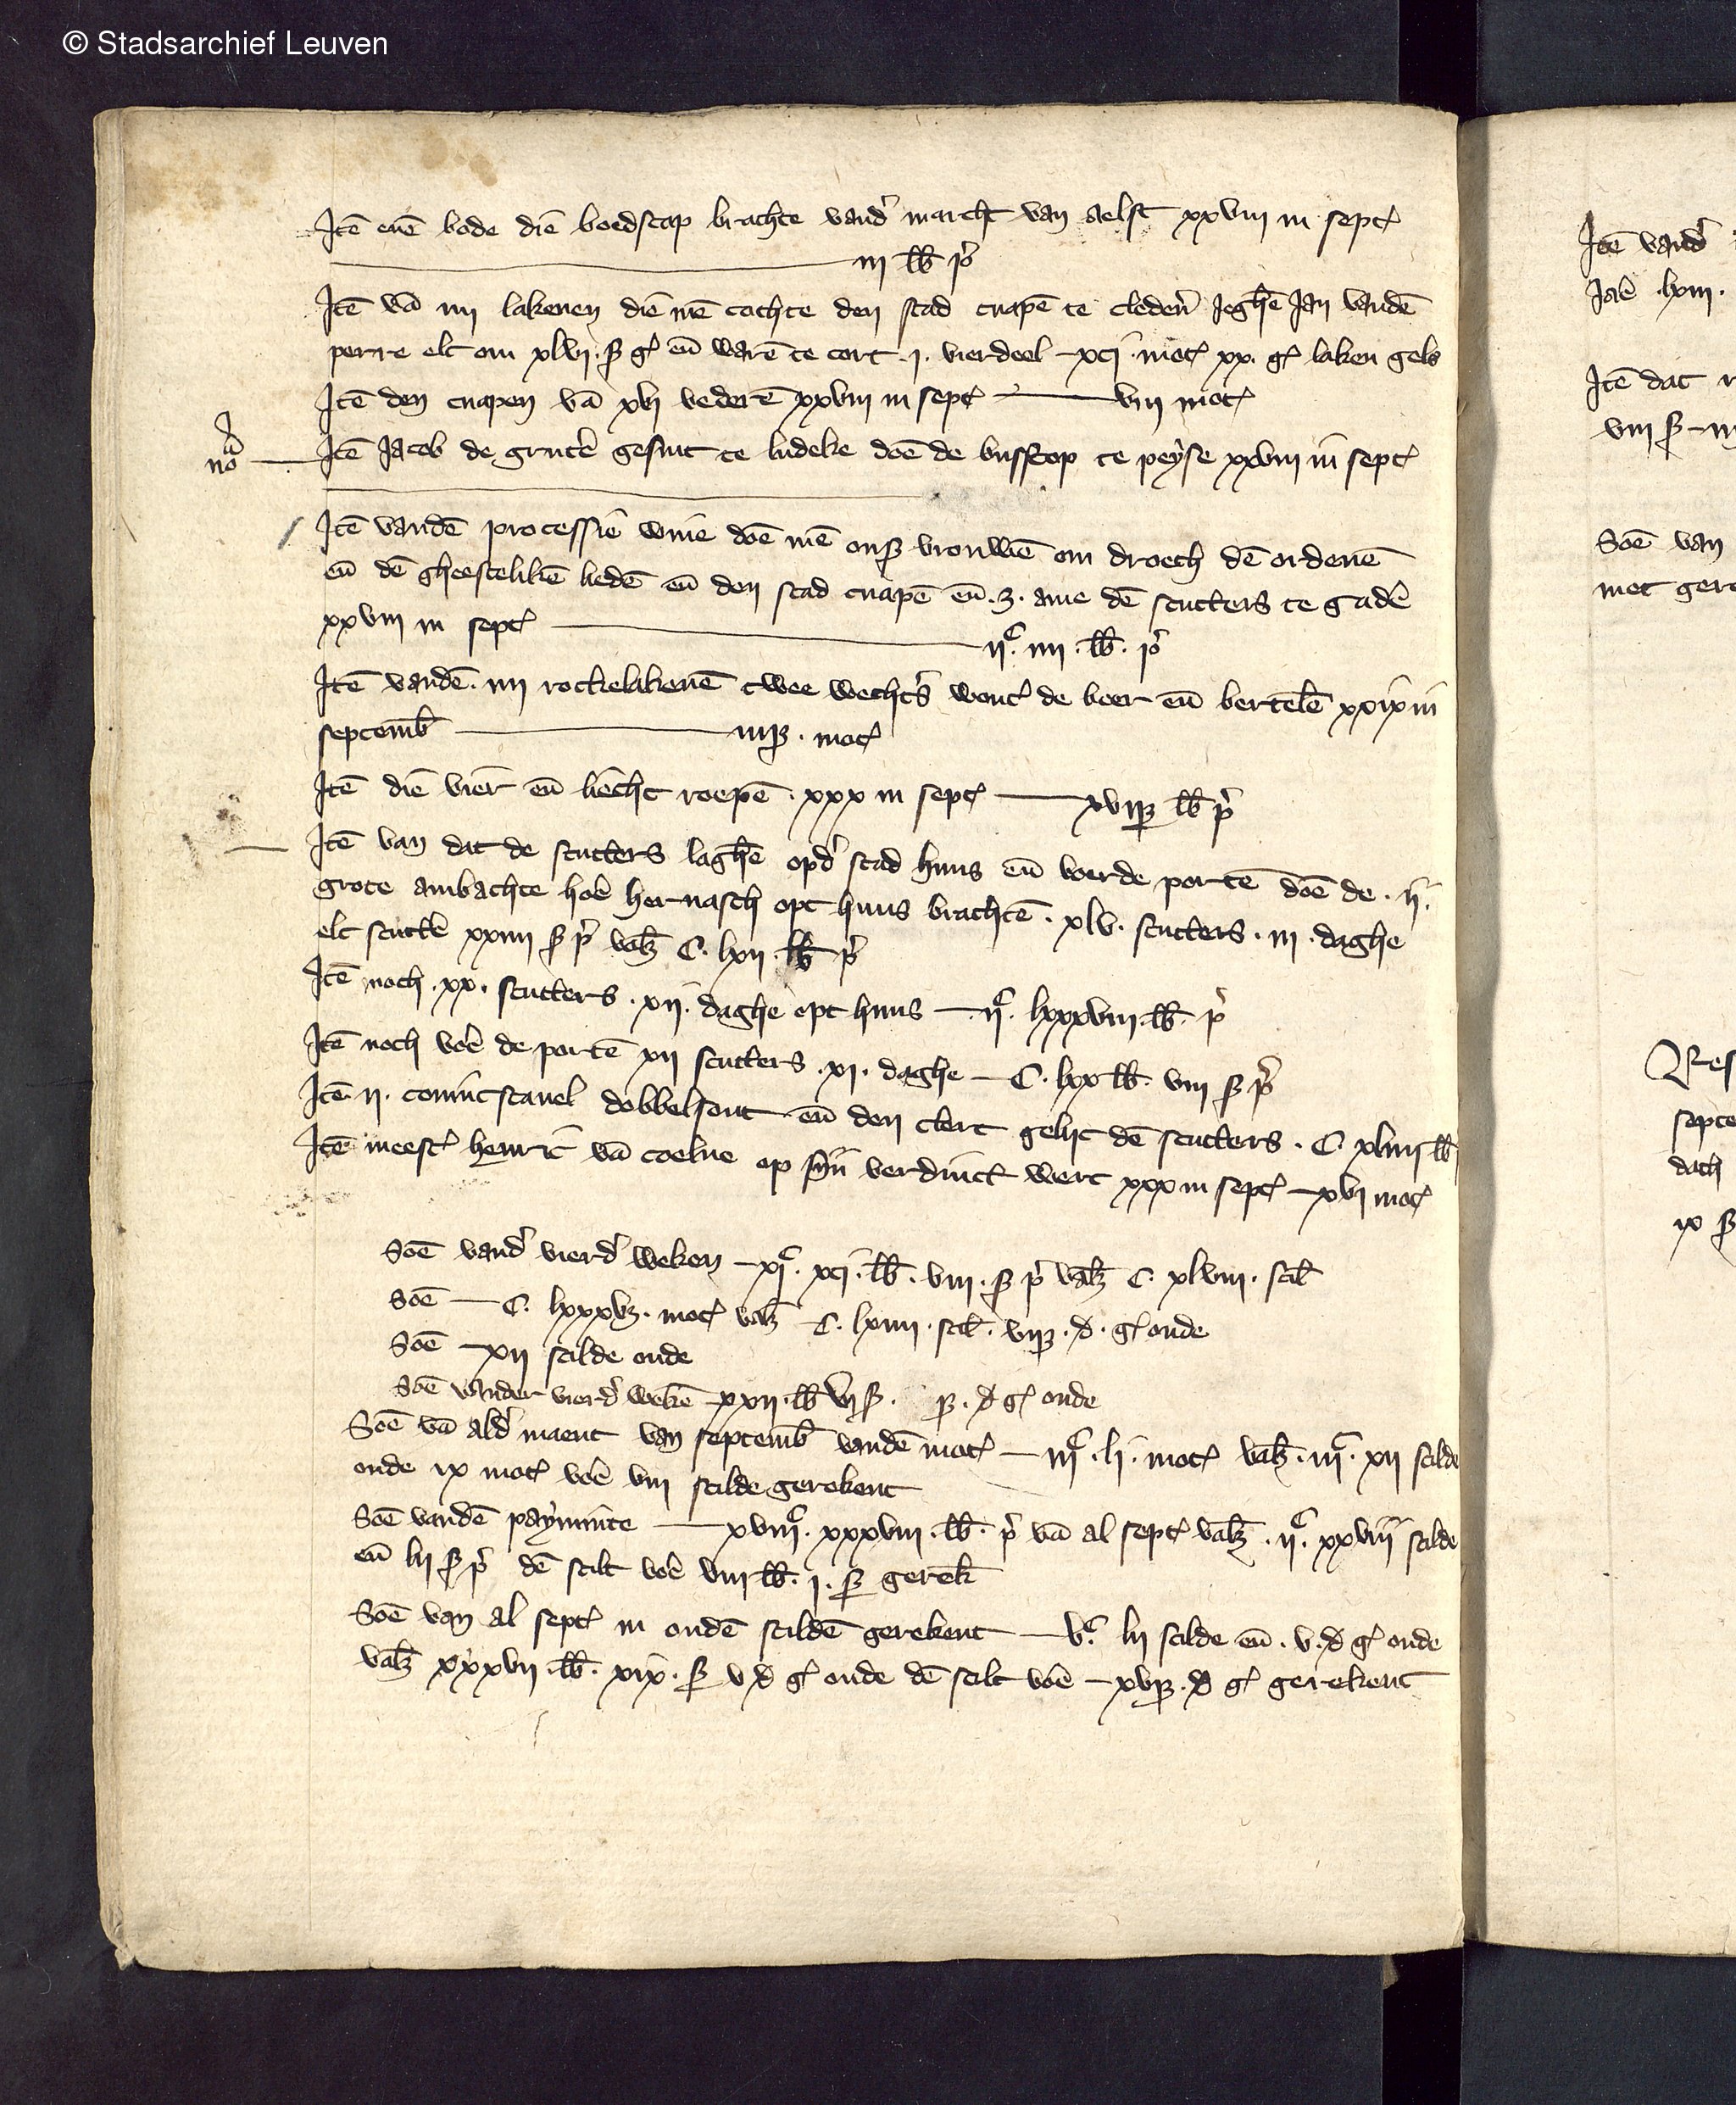 © Stadsarchief Leuven
Itē enē bode diē boedscap brachte vand' marcht van aelst xxviii in sept'
iii lb p'
Itē vā iiii lakenen diē mē cochte den stad cnapē te cleden' Jeghē Jan vandē
perre elc om xlvi. s g' eñ warē te cort .i. vierdeel xci mot' xx. g' laken gels
Itē den cnapen vā xvi vederē xxviii in sept' viii mot'
no Itē Jacob de grutē gesint te ludeke doē de busscop te peyse xxviii in sept'
Itē vandē processiē doē mē ons vrouwē om droech dē ordenē
eñ dē gheestelikē liedē eñ den stad cnapē eñ .3. ame dē scutters te gadē
xxviii in sept' iic. iiii. lb. p'
Itē vandē. iiii rockelakenē twee wecht's wout' de beer eñ bertelē xxix in
septemb' mot'
Itē diē vier eñ liecht roepē. xxx in sept' lb p'
Itē van dat de scutters laghē opd' stad huus eñ voerde portē doē de .ii.
grote ambachte hoē hernasch opt huus brachtē. xlv. scutters. iii. daghe
elc scuttē xxiiii s p' valz C. lxii. lb p'
Itē noch .xx. scutters .xii. daghe opt huus iic. lxxxviii. lb. p'
Itē noch voē de portē xii scutters .xi. daghe C. lxx lb. viii s p'
Itē ii. coninc stauel dobbelsout eñ den clerc gelijc dē scutters. C. xliiii lb
Itē meest' henric vā coelne op sijn verdinct werc xxx in sept' xvi mot'
Soē vand' vierd' weken xic. xci. lb. viii. s p' valz C. xlviii. scil
Soē C. mot' valz C. lxiiii. scil. d. g' oude
Soē xii scilde oude
Soē vander vierd' wekē xxii. lb vi s. d g' oude
Soē vā ald' maent van septemb' vandē mot' iiic. li. mot' valz. iiic. xii scilde
oude ix mot' voē viii scilde gerekent
Soē vandē paymīnte xviiic. xxxviii. lb. p' vā al sept' valz. iic. xxviii scilde
eñ lii s p' dē scilt voē viii lb. i. s gerek
Soē van al sept' in oudē scildē gerekent vc. lii scilde eñ. v. d g' oude
valz xxxvii. lb. xix. s v d g' oude dē scilt voē d g' gerekent
Itē vand'
Itē dat
viii s
Soē van
met gere
Res
septe
dach
ix s